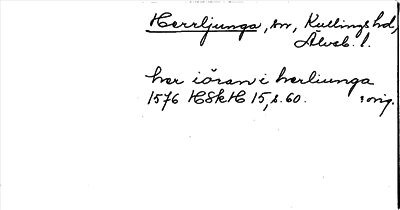 Herrljunga, sn, Kullings hd,
Älvsb. l.
her iöran i herliunga
1576 HSkH 15, s. 60. orig.